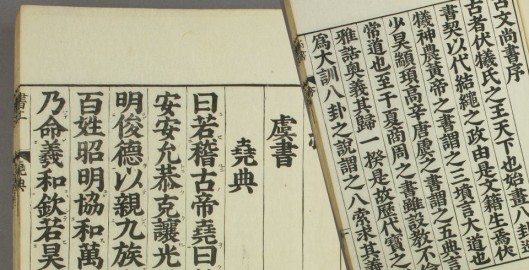 古文尚書序
古者伏犧氏之王天下也始畫八卦
書契以代結繩之政由是文籍生焉伏
犧神農黃帝之書謂之三墳言大道也
少昊顓頊高辛唐虞之書謂之五典言
常道也至于夏商周之書雖設教不
雅誥奧義其歸一揆是故歷代寶之
為大訓八卦之說謂之八索求其義
虞書
堯典
曰若稽古帝堯曰
安安允恭克讓光
明俊德以親九族
百姓昭明協和萬
乃命羲和欽若昊
堯典